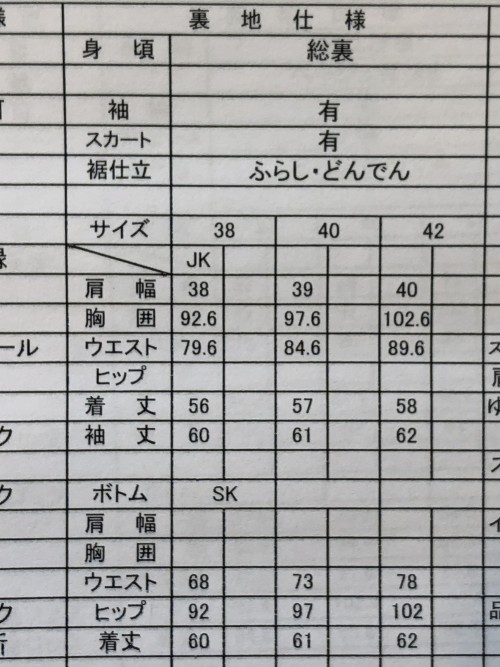 様
裏地仕様
身頃 総裏
袖 有
スカート 有
裾仕立 ふらし・どんでん
サイズ 38 40 42
JK
肩幅 38 39 40
胸囲 92.6 97.6 102.6
ール ウエスト 79.6 84.6 89.6
ヒップ
着丈 56 57 58
ク 袖丈 60 61 62
ク ボトム SK
肩幅
胸囲
ウエスト 68 73 78
ク ヒップ 92 97 102 品
着丈 60 61 62